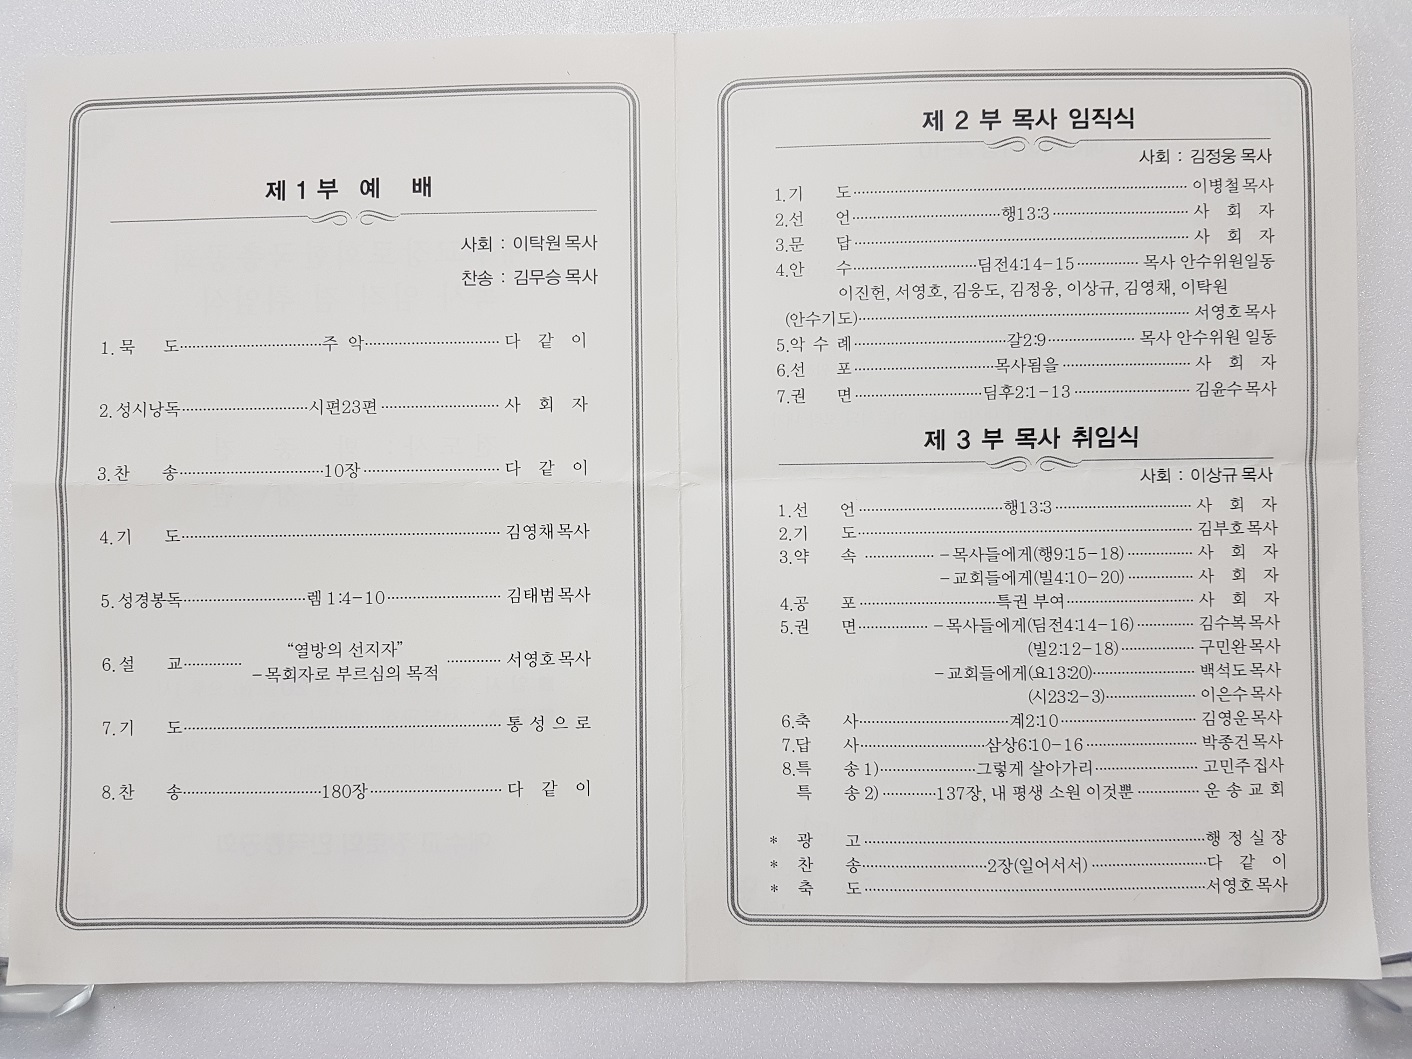 제 1 부 예 배
사회 : 이탁원 목사
찬송 : 김무승 목사
1. 묵 도 주 악 다 같 이
2. 성시낭독 시편23편 사 회 자
3. 찬 송 10장 다 같 이
4. 기 도 김영채 목사
5. 성경봉독 렘 1:4-10 김태범 목사
6. 설 교 “열방의 선지자” 서영호 목사
-목회자로 부르심의 목적
7. 기 도 통 성 으 로
8. 찬 송 180장 다 같 이
제 2 부 목사 임직식
사회 : 김정웅 목사
1. 기 도 이병철 목사
2. 선 언 행13:3 사 회 자
3. 문 답 사 회 자
4. 안 수 딤전4:14-15 목사 안수위원일동
이진헌, 서영호, 김응도, 김정웅, 이상규, 김영채, 이탁원
(안수기도) 서영호 목사
5. 악 수 례 갈2:9 목사 안수위원 일동
6. 선 포 목사됨을 사 회 자
7. 권 면 딤후2:1-13 김윤수 목사
제 3 부 목사 취임식
사회 : 이상규 목사
1. 선 언 행13:3 사 회 자
2. 기 도 김부호 목사
3. 약 속 -목사들에게(행9:15-18) 사 회 자
-교회들에게(빌4:10-20) 사 회 자
4. 공 포 특권 부여 사 회 자
5. 권 면 -목사들에게(딤전4:14-16) 김수복 목사
(빌2:12-18) 구민완 목사
-교회들에게(요13:20) 백석도 목사
(시23:2-3) 이은수 목사
6. 축 사 계2:10 김영운 목사
7. 답 사 삼상6:10-16 박종건 목사
8. 특 송 1) 그렇게 살아가리 고민주 집사
특 송 2) 137장, 내 평생 소원 이것뿐 운 송 교 회
* 광 고 행 정 실 장
* 찬 송 2장(일어서서) 다 같 이
* 축 도 서영호 목사